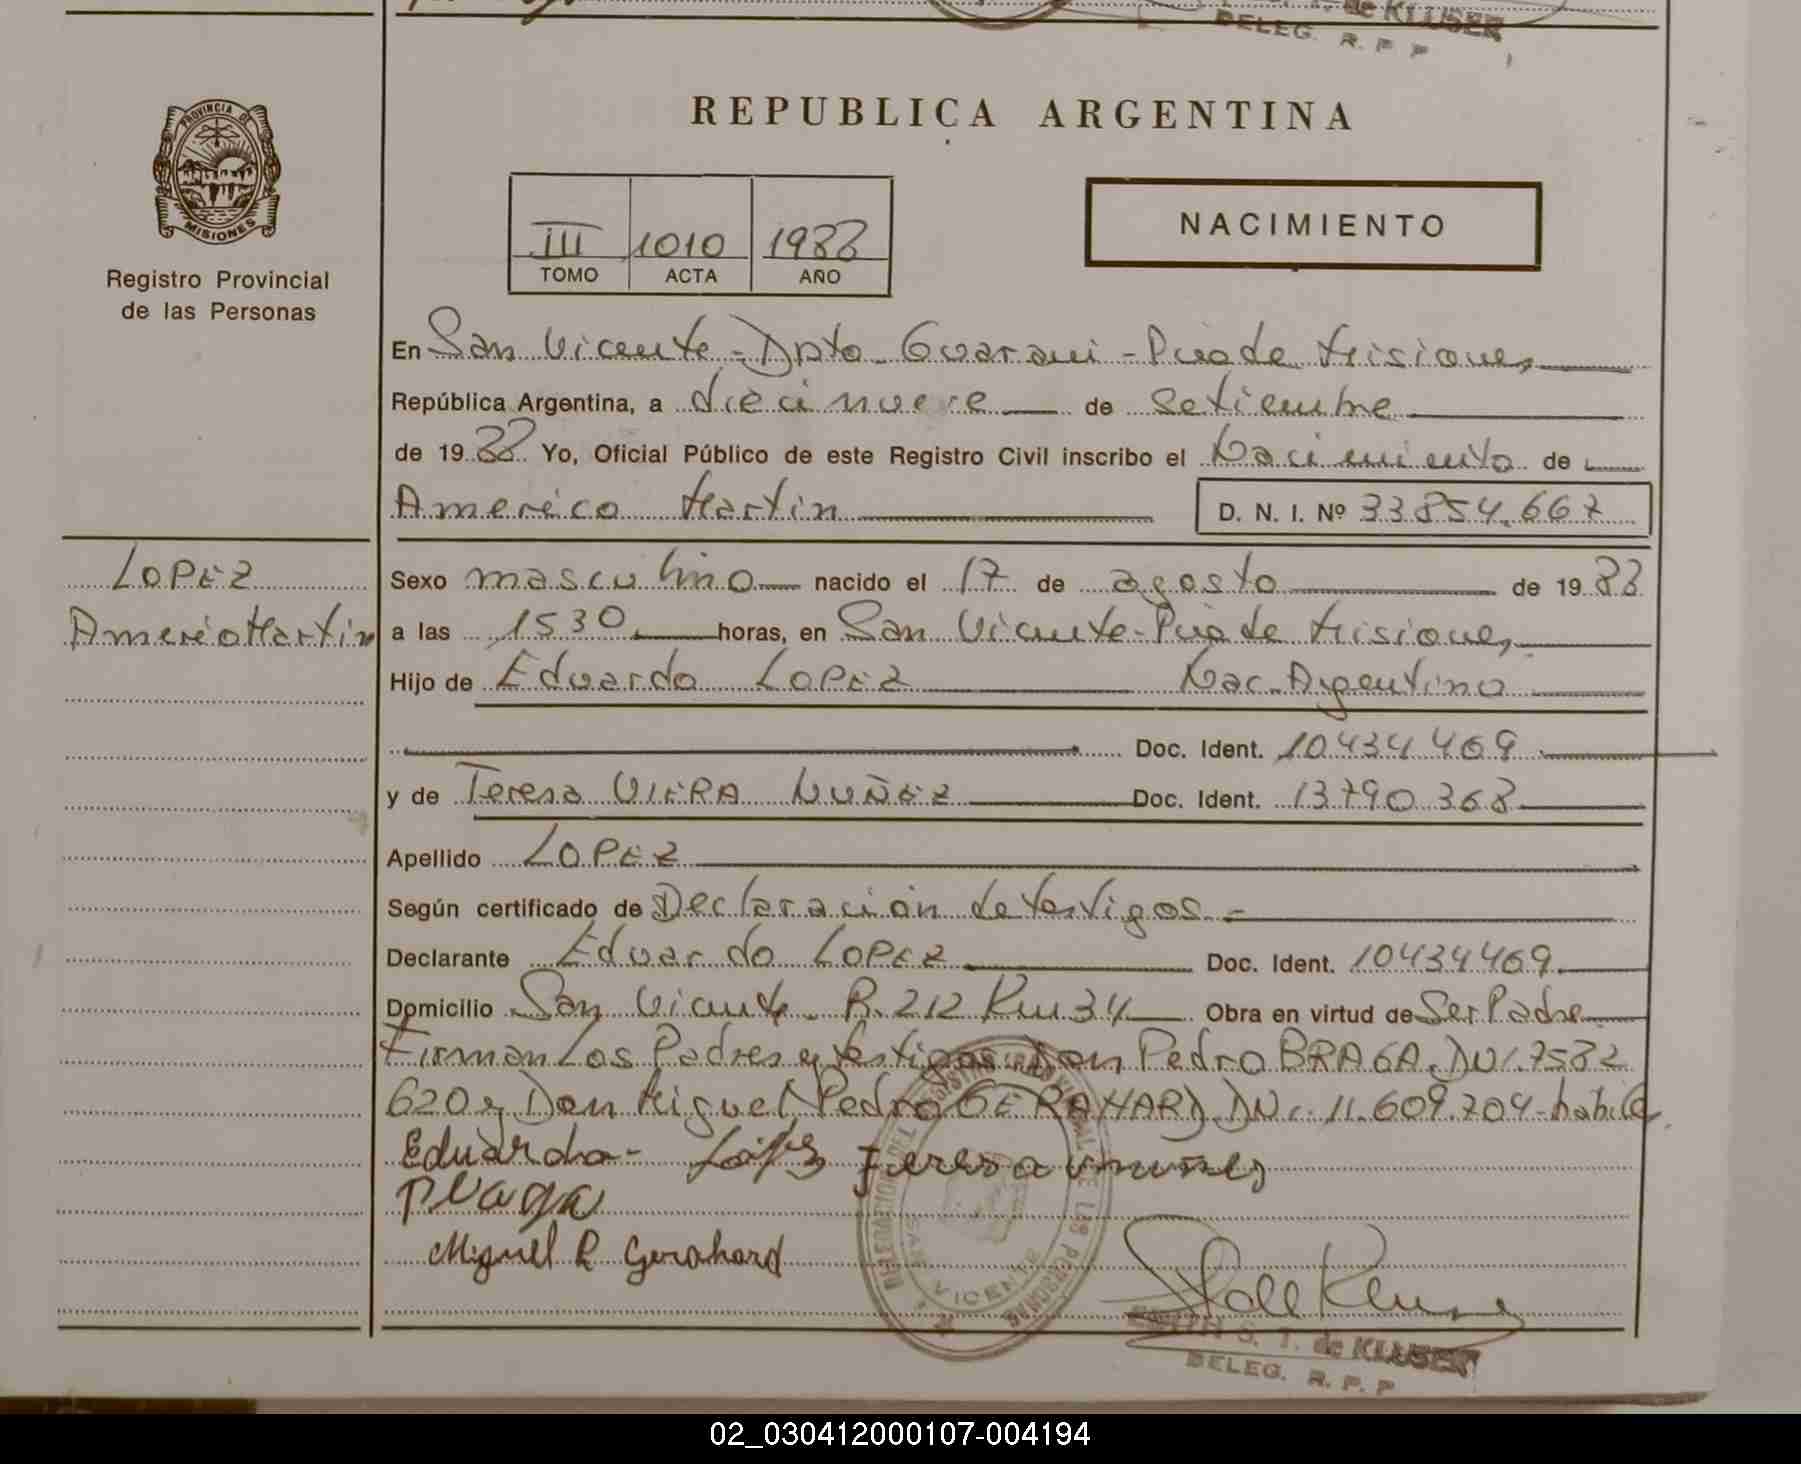 de KLUSER
DELEG. R. P. P
PROVINCIA DE
MISIONES
Registro Provincial
de las Personas
REPUBLICA ARGENTINA
III 1010 1988
TOMO ACTA AÑO
NACIMIENTO
En San Vicente - Dpto. Guarani - Pcia de Misiones
República Argentina, a diecinueve de Setiembre
de 1988 Yo, Oficial Público de este Registro Civil inscribo el Nacimiento de
Américo Martin D. N. I. Nº 33.854.667
LOPEZ
Américo Martin
Sexo masculino nacido el 17 de agosto de 1988
a las 1530 horas, en San Vicente - Pcia de Misiones
Hijo de Eduardo LOPEZ Nac. Argentino
Doc. Ident. 10434469
y de Teresa VIERA NUÑEZ Doc. Ident. 13790368
Apellido LOPEZ
Según certificado de Declaración de testigos -
Declarante Eduardo LOPEZ Doc. Ident. 10434469
Domicilio San Vicente. R. 212 Km 34 Obra en virtud de Ser Padre
Firman Los Padres y testigos Don Pedro BRAGA. DNI. 7582
620 y Don Miguel Pedro GERAHARD DNI. 11.609.704 - habiles
Eduardo - Teresa
Miguel P. Gerahard
DELEGACION DEL REGISTRO PROVINCIAL DE LAS PERSONAS
SAN VICENTE
S. T. de KLUSER
DELEG. R. P. P
02_030412000107-004194